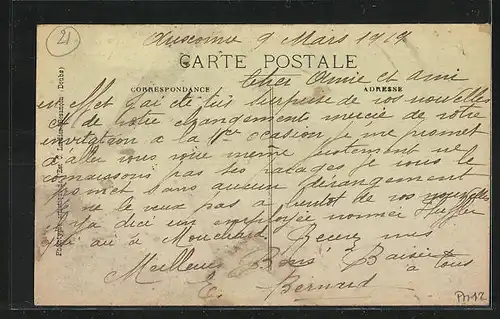 21
Auxonne 9 Mars 1917
CARTE POSTALE
CORRESPONDANCE
ADRESSE
Cher Amie et ami
en effet j'ai été surprise de vos nouvelles
et de votre changement merci de votre
invitation a la 1ère ocasion je me promet
d'aller vous voire même justement ne
connaissons pas les parages je vous le
promet sans aucun dérangement
ne le veux pas a bientot de vos nouvelles
il y a dici un employée nommé
qui au a Mouchard Recevez mes
Meilleurs Bons Baisers
a tous
E. Bernard